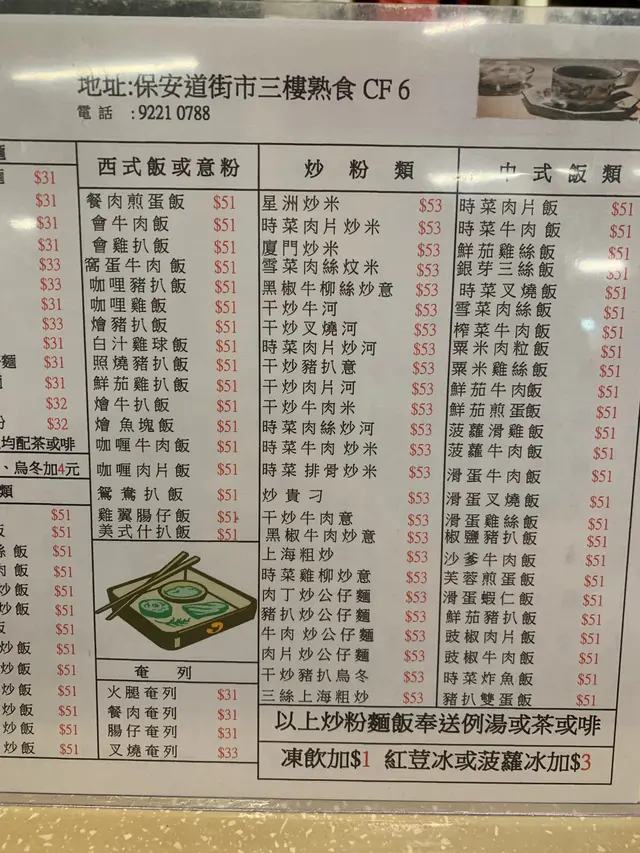 地址:保安道街市三樓熟食 CF 6
電話 :9221 0788
麵
$31
$31
$31
$31
$33
$33
$31
$33
$31
麵 $31
$31
$32
$32
均配茶或啡
、烏冬加4元
類
$51
飯 $51
絲飯 $51
肉飯 $51
炒飯 $51
炒飯 $51
飯 $51
炒飯 $51
炒飯 $51
炒飯 $51
炒飯 $51
炒飯 $51
炒飯 $51
西式飯或意粉
餐肉煎蛋飯 $51
會牛肉飯 $51
會雞扒飯 $51
窩蛋牛肉飯 $51
咖哩豬扒飯 $51
咖哩雞飯 $51
燴豬扒飯 $51
白汁雞球飯 $51
照燒豬扒飯 $51
鮮茄雞扒飯 $51
燴牛扒飯 $51
燴魚塊飯 $51
咖喱牛肉飯 $51
咖喱肉片飯 $51
鴛鴦扒飯 $51
雞翼腸仔飯 $51
美式什扒飯 $51
奄列
火腿奄列 $31
餐肉奄列 $31
腸仔奄列 $31
叉燒奄列 $33
炒粉類
星洲炒米 $53
時菜肉片炒米 $53
廈門炒米 $53
雪菜肉絲炆米 $53
黑椒牛柳絲炒意 $53
干炒牛河 $53
干炒叉燒河 $53
時菜肉片炒河 $53
干炒豬扒意 $53
干炒肉片河 $53
干炒牛肉米 $53
時菜肉絲炒河 $53
時菜牛肉炒米 $53
時菜排骨炒米 $53
炒貴刁 $53
干炒牛肉意 $53
黑椒牛肉炒意 $53
上海粗炒 $53
時菜雞柳炒意 $53
肉丁炒公仔麵 $53
豬扒炒公仔麵 $53
牛肉炒公仔麵 $53
肉片炒公仔麵 $53
干炒豬扒烏冬 $53
三絲上海粗炒 $53
中式飯類
時菜肉片飯 $51
時菜牛肉飯 $51
鮮茄雞絲飯 $51
銀芽三絲飯 $51
時菜叉燒飯 $51
雪菜肉絲飯 $51
榨菜牛肉飯 $51
粟米肉粒飯 $51
粟米雞絲飯 $51
鮮茄牛肉飯 $51
鮮茄煎蛋飯 $51
菠蘿滑雞飯 $51
菠蘿牛肉飯 $51
滑蛋牛肉飯 $51
滑蛋叉燒飯 $51
滑蛋雞絲飯 $51
椒鹽豬扒飯 $51
沙爹牛肉飯 $51
芙蓉煎蛋飯 $51
滑蛋蝦仁飯 $51
鮮茄豬扒飯 $51
豉椒肉片飯 $51
豉椒牛肉飯 $51
時菜炸魚飯 $51
豬扒雙蛋飯 $51
以上炒粉麵飯奉送例湯或茶或啡
凍飲加$1 紅荳冰或菠蘿冰加$3